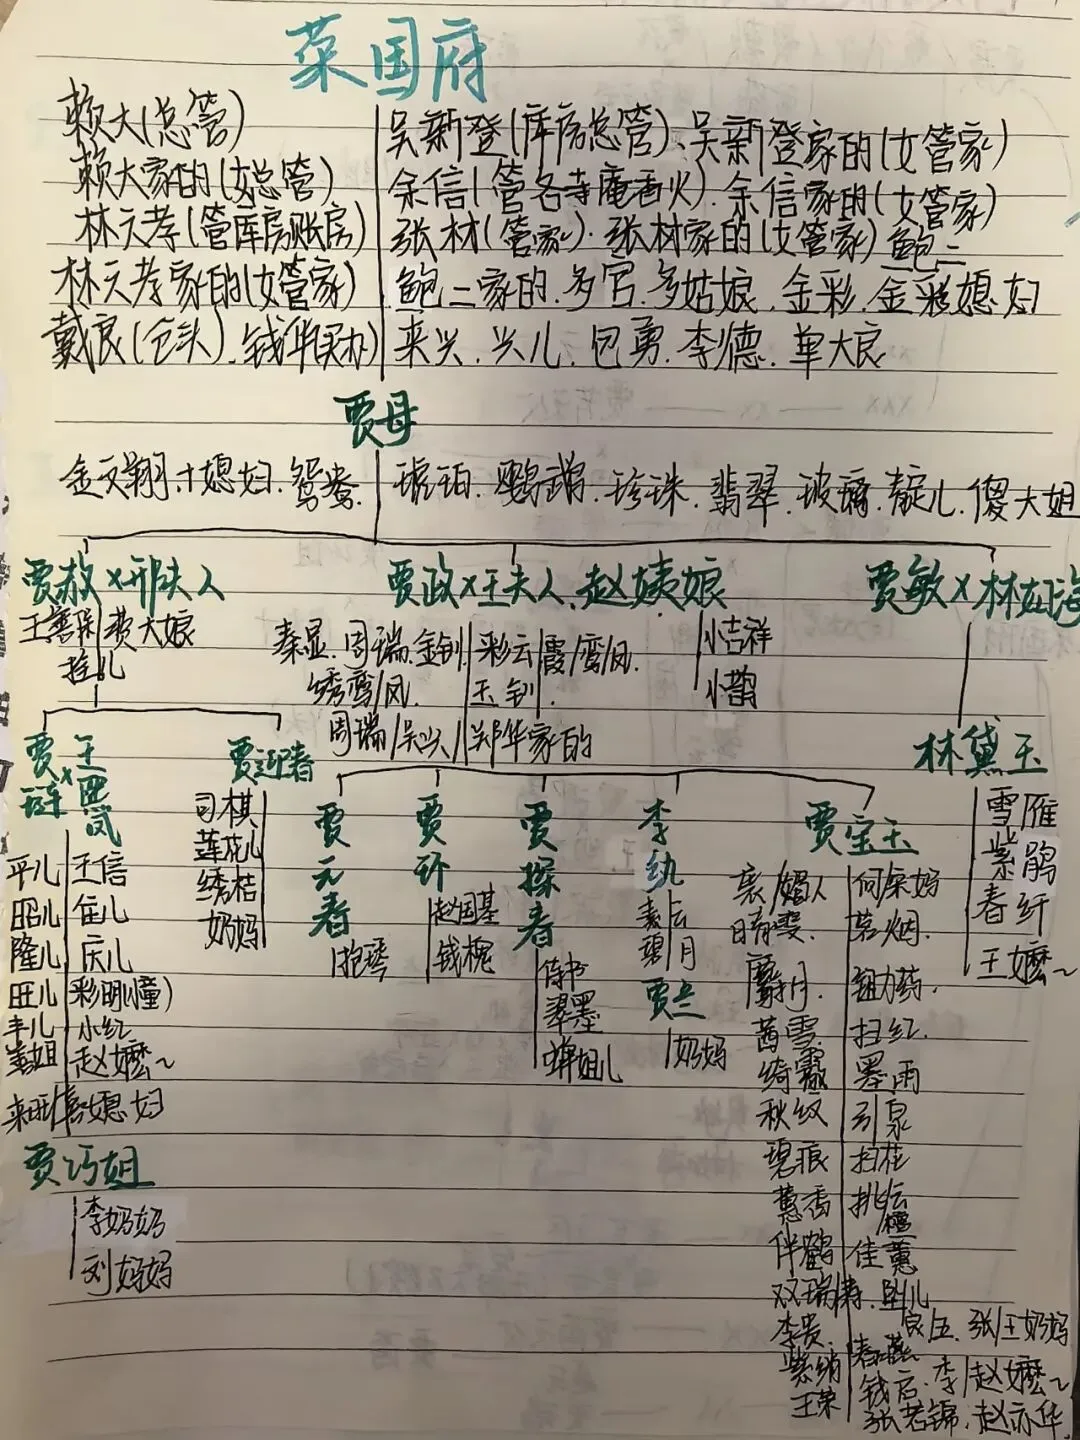 菜国府
赖大(总管)
赖大家的(女总管)
林之孝(管库房账房)
林之孝家的(女管家)
戴良(仓头).钱华买办
吴新登(库房总管)、吴新登家的(女管家)
余信(管各寺庵香火).余信家的(女管家)
张材(管家)·张材家的(女管家)鲍二
鲍二家的.多官.多姑娘.金彩.金彩媳妇
来兴.兴儿.包勇.李德.单大良
贾母
金文翔+媳妇.鸳鸯.
琥珀.鹦鹉.珍珠.翡翠.玻璃.靛儿.傻大姐
贾赦×邢夫人
王善保 费大娘
贾政×王夫人.赵姨娘
秦显.周瑞.金钏 彩云 霞/鸾/凤.
绣鸾/凤. 玉钏.
周瑞/吴兴/郑华家的
小吉祥
小鹊
贾敏×林如海
贾琏×王熙凤
平儿 王信
昭儿 住儿
隆儿 庆儿
旺儿 彩明(童)
丰儿 小红
善姐 赵嬷~
来旺 媳妇
贾巧姐
李奶奶
刘妈妈
贾迎春
司棋
莲花儿
绣桔
奶妈
贾元春
抱琴
贾环
赵国基
钱槐
贾探春
侍书
翠墨
蝉姐儿
李纨
素云
碧月
贾兰
奶妈
贾宝玉
袭/媚人 何奶妈
晴雯. 茗烟.
麝月. 锄药.
茜雪. 扫红.
绮霰 墨雨
秋纹 引泉
碧痕 扫花
蕙香 挑云
伴鹤 佳蕙
双瑞/寿. 坠儿
李贵. 良/五. 张/王奶妈
紫绡 春燕
王荣 钱启.李/赵嬷~
张若锦.赵亦华
林黛玉
雪雁
紫鹃
春纤
王嬷~